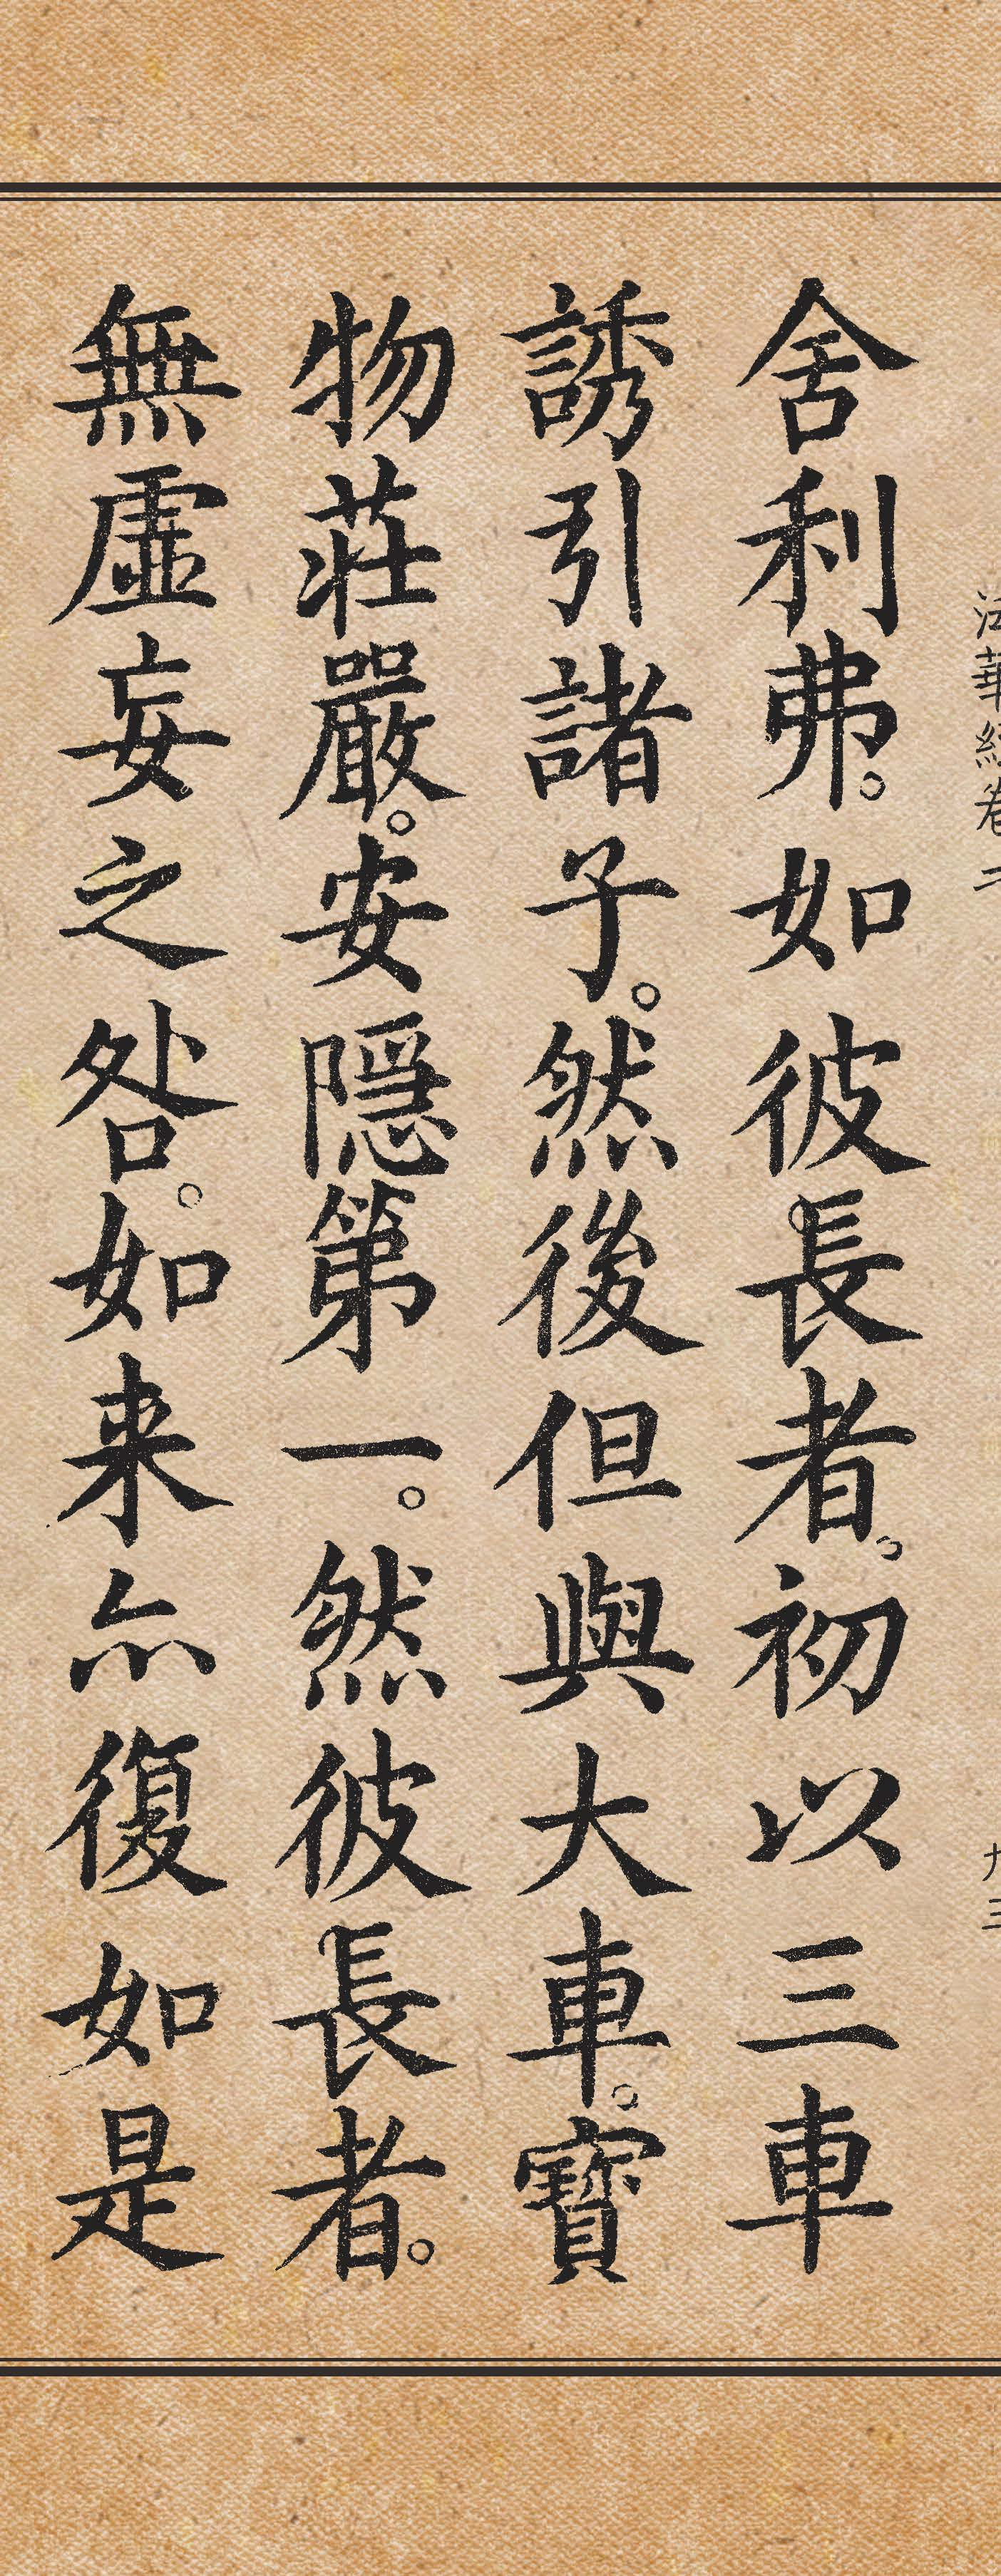 法華經卷二 九三
舍利弗。如彼長者。初以三車
誘引諸子。然後但與大車。寶
物莊嚴。安隱第一。然彼長者。
無虛妄之咎。如来亦復如是